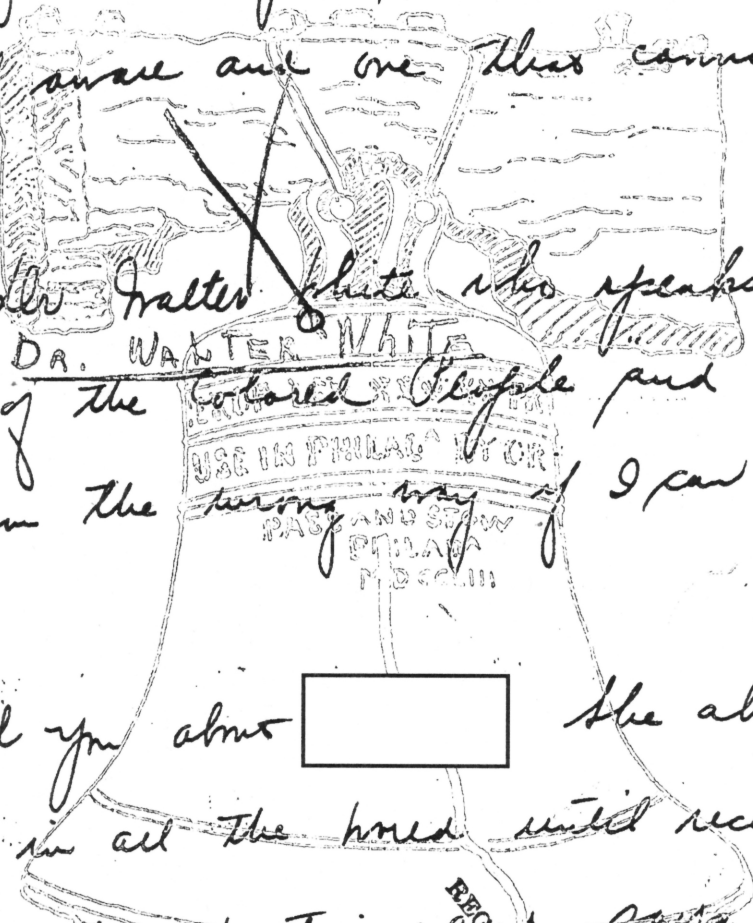 aware and one that
Walter White who speaks
DR. WALTER WHITE
of the Colored People and
USE IN PHILADA BY OR
the wrong way if I can
PASS AND STOW
PHILADA
MDCCLIII
you about She
in all the until
REC